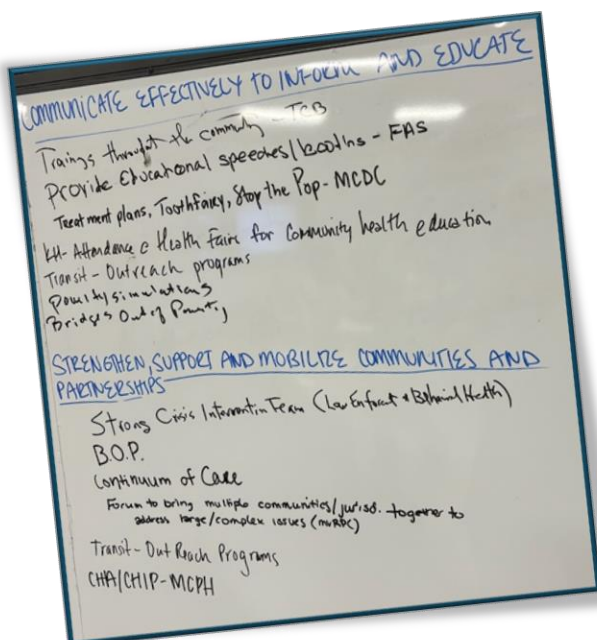 COMMUNICATE EFFECTIVELY TO INFORM AND EDUCATE
Trainings throughout the community - TCB
Provide Educational speeches/booths - FAS
Treatment plans, Toothfairy, Stop the Pop - MCDC
KH - Attendance @ Health Fairs for Community health education
Transit - Outreach programs
Poverty simulations
Bridges Out of Poverty
STRENGTHEN, SUPPORT AND MOBILIZE COMMUNITIES AND
PARTNERSHIPS
Strong Crisis Intervention Team (Law Enforcement & Behavioral Health)
B.O.P.
Continuum of Care
Forum to bring multiple communities/jurisd. together to
address large/complex issues
Transit - Out Reach Programs
CHA/CHIP - MCPH